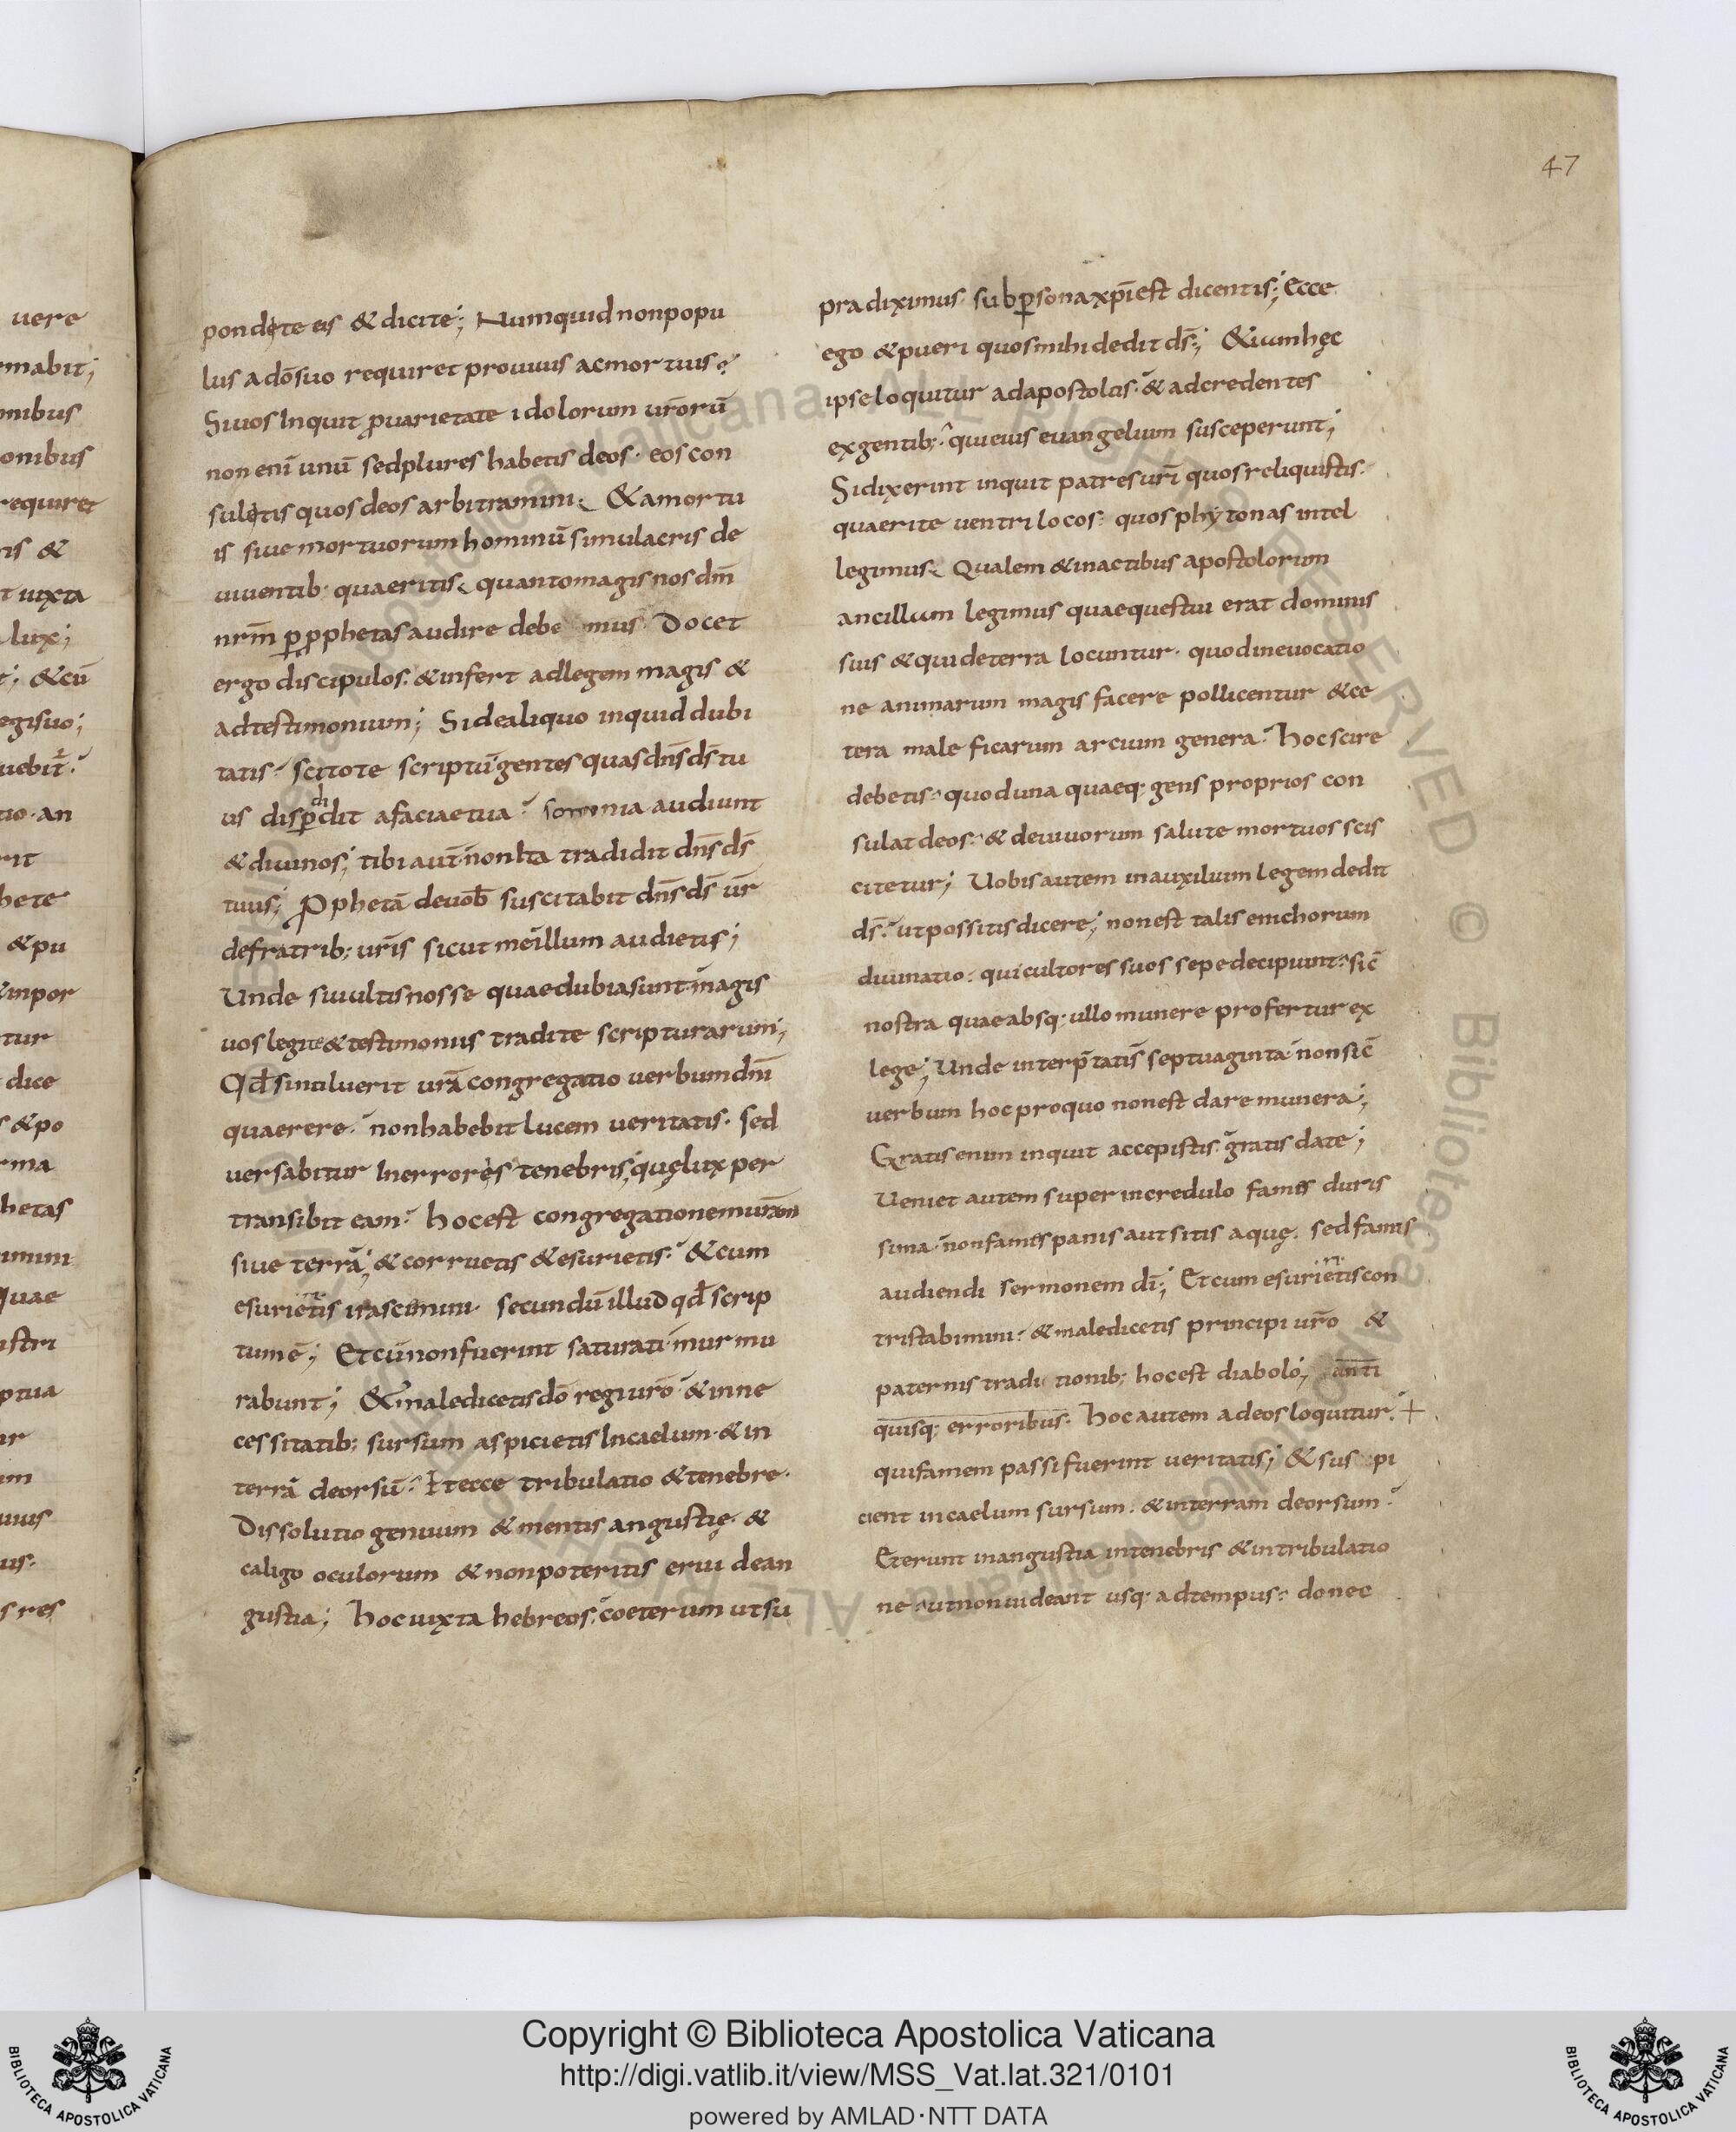 47
uere
mabit;
nibus
onibus
requiret
ris &
t iuxta
lux;
t; &cū
egisuo;
uebit̄
tio. an
rit
hete
&pu
&inpor
tur
dice
s &po
rma
hetas
imini
Quae
istri
ptua
ur
um
uiuis
us:
s res
pondete eis & dicite; Numquid non popu
lus a dō suo requiret pro uiuis ac mortuis?
Si uos inquit ꝓ uarietate idolorum urōrū
non enī unū sed plures habetis deos. eos con
suletis quos deos arbitramini. & a mortu
is siue mortuorum hominū simulacris de
uiuentib: quaeritis. quanto magis nos dm̄
nrm̄ ꝑ ꝓphetas audire debe mus. Docet
ergo discipulos. & infert ad legem magis &
ad testimonium; Si de aliquo inquid dubi
tatis. scitote scriptū gentes quas dn̄s ds̄ tu
di
us disꝑdit a faciae tua. somnia audiunt
& diuinos; tibi aut̄ non ita tradidit dn̄s ds̄
tuus; Prophetā de uob̄ suscitabit dn̄s ds̄ ur̄
de fratrib; uris̄ sicut me illum audietis;
Unde si uultis nosse quae dubia sunt magis
uos legi te & testimoniis tradite scripturarum;
Qd̄ si noluerit urā congregatio uerbum dnī
quaerere. non habebit lucem ueritatis. sed
uersabitur in errores tenebris; quę lux per
transibit eam. hoc est congregationem uram̄
siue terrā; & corruetis & esurietis. & cum
esurietis irascimini. secundū illud qd̄ scrip
tum ē; Et cū non fuerint saturati murmu
rabunt; & maledicetis dō regi urō & in ne
cessitatib; sursum aspicietis in caelum. & in
terrā deorsū. Et ecce tribulatio & tenebre.
Dissolutio genuum & mentis angustię. &
caligo oculorum & non poteritis erui de an
gustia; hoc iuxta hebreos. coeterum ut su
pra diximus. sub ꝑsona xpī est dicentis; Ecce
ego & pueri quos mihi dedit ds̄; & cum hęc
ipse loquitur ad apostolos. & ad credentes
ex gentib; qui eius euangelium susceperunt;
Si dixerint inquit patres urī quos reliquistis.
quaerite uentrilocos. quos phytonas intel
legimus. Qualem & in actibus apostolorum
ancillam legimus quae questui erat dominis
suis & qui de terra locuntur. quod in euocatio
ne animarum magis facere pollicentur & ce
tera maleficarum arcium genera. hoc scire
debetis. quod una quaeq; gens proprios con
sulat deos. & de uiuorum salute mortuos scis
citetur; Uobis autem in auxilium legem dedit
ds̄. ut possitis dicere; non est talis ethichorum
diuinatio. qui cultores suos sepe decipiunt. sic̄
nostra quae absq; ullo munere profertur ex
lege; Unde interp̄tatis septuaginta non sic̄
uerbum hoc pro quo non est dare munera;
Gratis enim inquit accepistis. gratis date;
Ueniet autem super incredulo fames duris
sima. non fames panis aut sitis aquę. sed famis
audiendi sermonem dī; Et cum esurietis con
tristabimini. & maledicetis principi urō &
paternis traditionib; hoc est diabolo; anti
quisq; erroribus. hoc autem ad eos loquitur. +
qui famem passi fuerint ueritatis; & suspi
cient in caelum sursum. & in terram deorsum.
Et erunt in angustia in tenebris & in tribulatio
ne. ut non uideant usq; ad tempus. donec
Biblioteca Apostolica Vaticana. ALL RIGHTS RESERVED ©
Copyright © Biblioteca Apostolica Vaticana
http://digi.vatlib.it/view/MSS_Vat.lat.321/0101
powered by AMLAD·NTT DATA
BIBLIOTECA APOSTOLICA VATICANA
BIBLIOTECA APOSTOLICA VATICANA